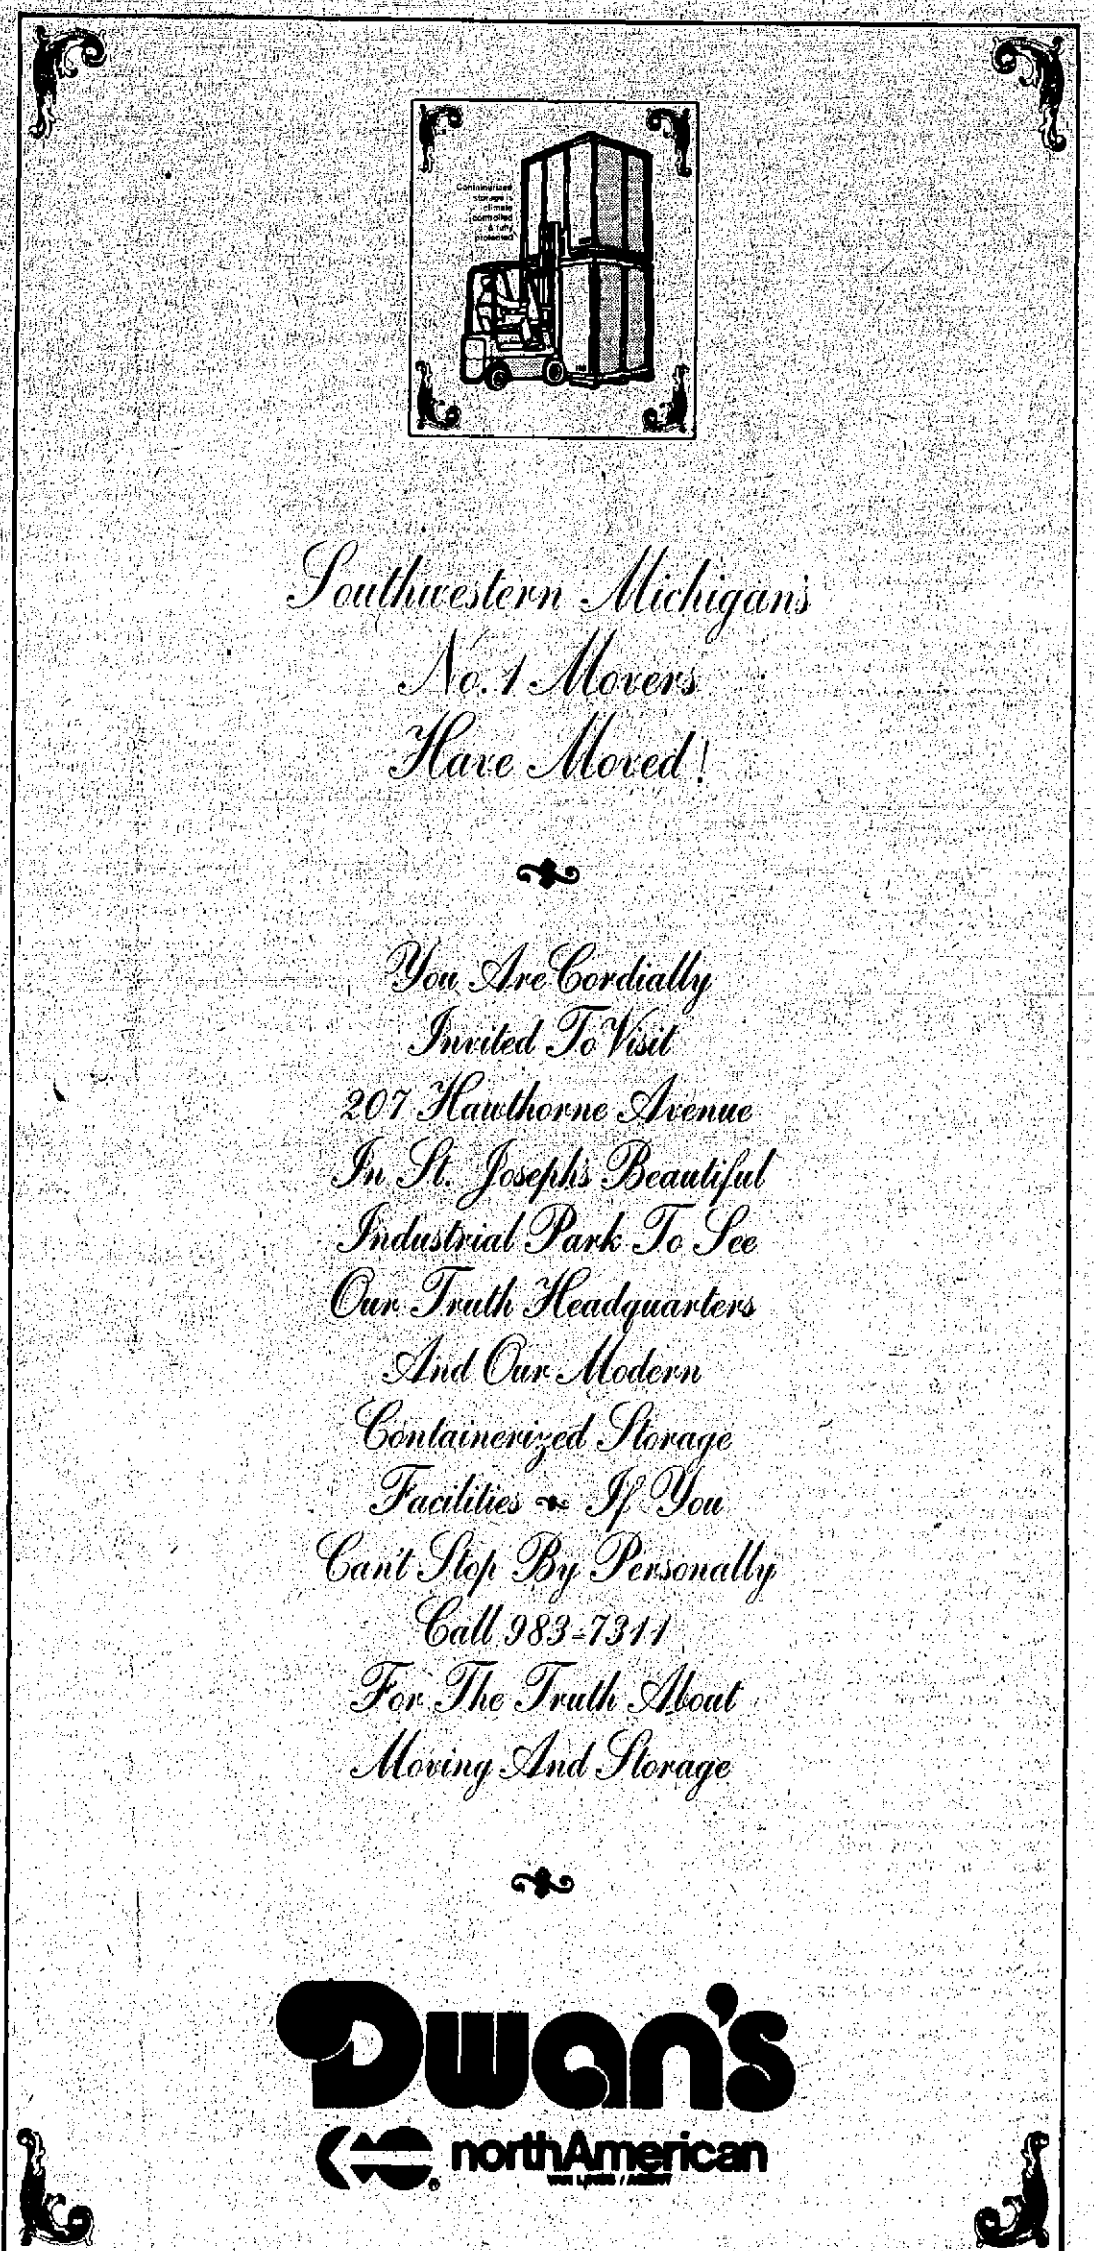 Containerized
storage is
climate
controlled
& fully
protected
Southwestern Michigan's
No. 1 Movers
Have Moved!
You Are Cordially
Invited To Visit
207 Hawthorne Avenue
In St. Joseph's Beautiful
Industrial Park To See
Our Truth Headquarters
And Our Modern
Containerized Storage
Facilities If You
Can't Stop By Personally
Call 983-7311
For The Truth About
Moving And Storage
Dwan's
northAmerican
VAN LINES / AGENT